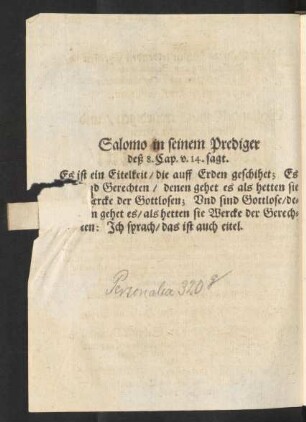 Salomo in seinem Prediger
deß 8. Cap. v. 14. sagt.
Es ist ein Eitelkeit / die auff Erden geschihet; Es
nd Gerechten / denen gehet es als hetten sie
ercke der Gottlosen; Vnd sind Gottlose / de-
n gehet es / als hetten sie Wercke der Gerech-
ten: Ich sprach / das ist auch eitel.
Personalia 320 8